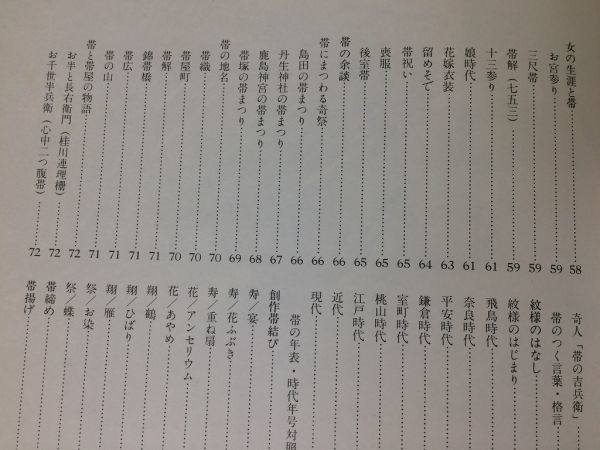 女の生涯と帯……58
お宮参り……59
三尺帯……59
帯解（七五三）……59
十三参り……61
娘時代……61
花嫁衣装……63
留めそで……64
帯祝い……65
喪服……65
後室帯……65
帯の余談……66
帯にまつわる奇祭……66
島田の帯まつり……66
丹生神社の帯まつり……67
鹿島神宮の帯まつり……68
帯塚の帯まつり……69
帯の地名……70
帯織……70
帯屋町……70
帯解……70
錦帯橋……71
帯の山……71
帯広……71
帯と帯屋の物語……71
お半と長右衛門（桂川連理柵）……72
お千世半兵衛（心中二つ腹帯）……72
奇人「帯の吉兵衛」
帯のつく言葉・格言
紋様のはなし
紋様のはじまり
飛鳥時代
奈良時代
平安時代
鎌倉時代
室町時代
桃山時代
江戸時代
近代
現代
帯の年表・時代年号対照
創作帯結び
寿／宴
寿／花ふぶき
寿／重ね扇
花／アンセリウム
花／あやめ
翔／鶴
翔／ひばり
翔／雁
祭／お染
祭／蝶
帯締め
帯揚げ